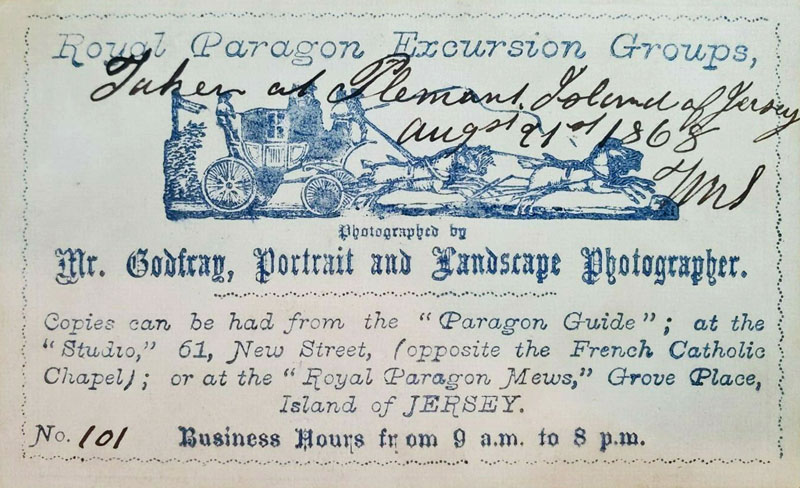 Royal Paragon Excursion Groups,
Taken at Plemont Island of Jersey
Augst 21st 1868
Photographed by
Mr. Godfray, Portrait and Landscape Photographer.
Copies can be had from the “Paragon Guide”; at the
“Studio,” 61, New Street, (opposite the French Catholic
Chapel); or at the “Royal Paragon Mews,” Grove Place,
Island of JERSEY.
No. 101 Business Hours from 9 a.m. to 8 p.m.